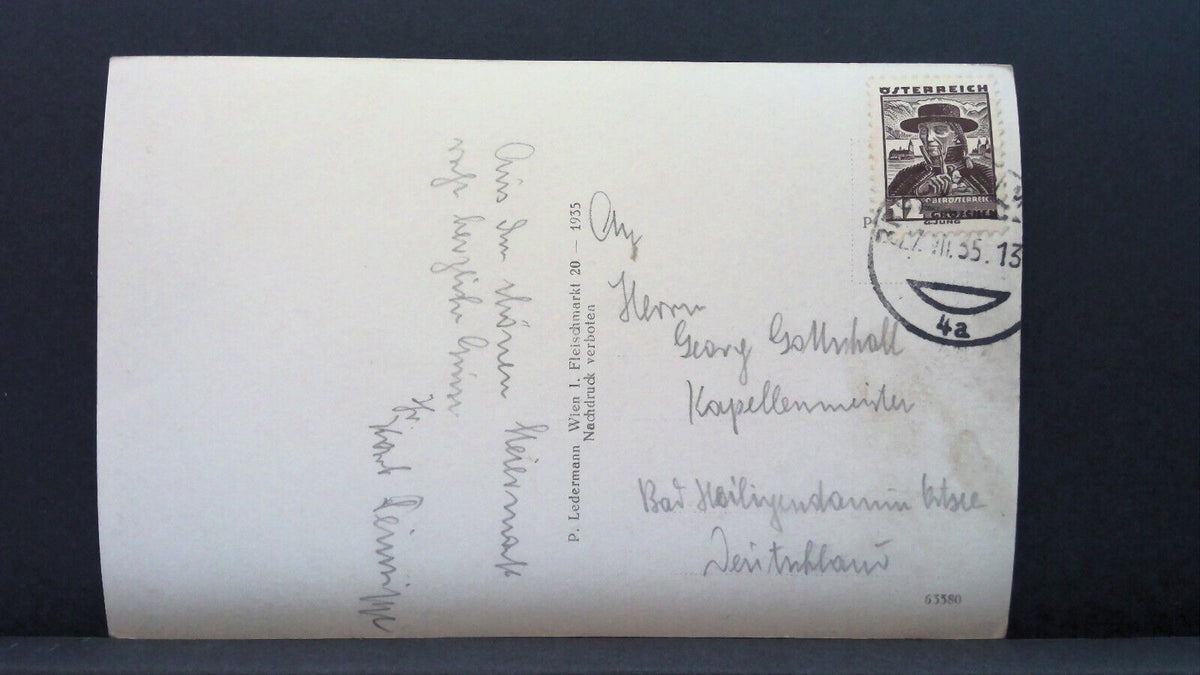 Aus der schönen Steiermark
recht herzliche Grüsse
P. Ledermann Wien I. Fleischmarkt 20 — 1935
Nachdruck verboten
An
Herrn
Georg Gottschalk
Kapellenmeister
Bad Heiligendamm Ostsee
Deutschland
ÖSTERREICH
12
OBERÖSTERREICH
GROSCHEN
G.JUNG
27.VII.35.13
4a
63380